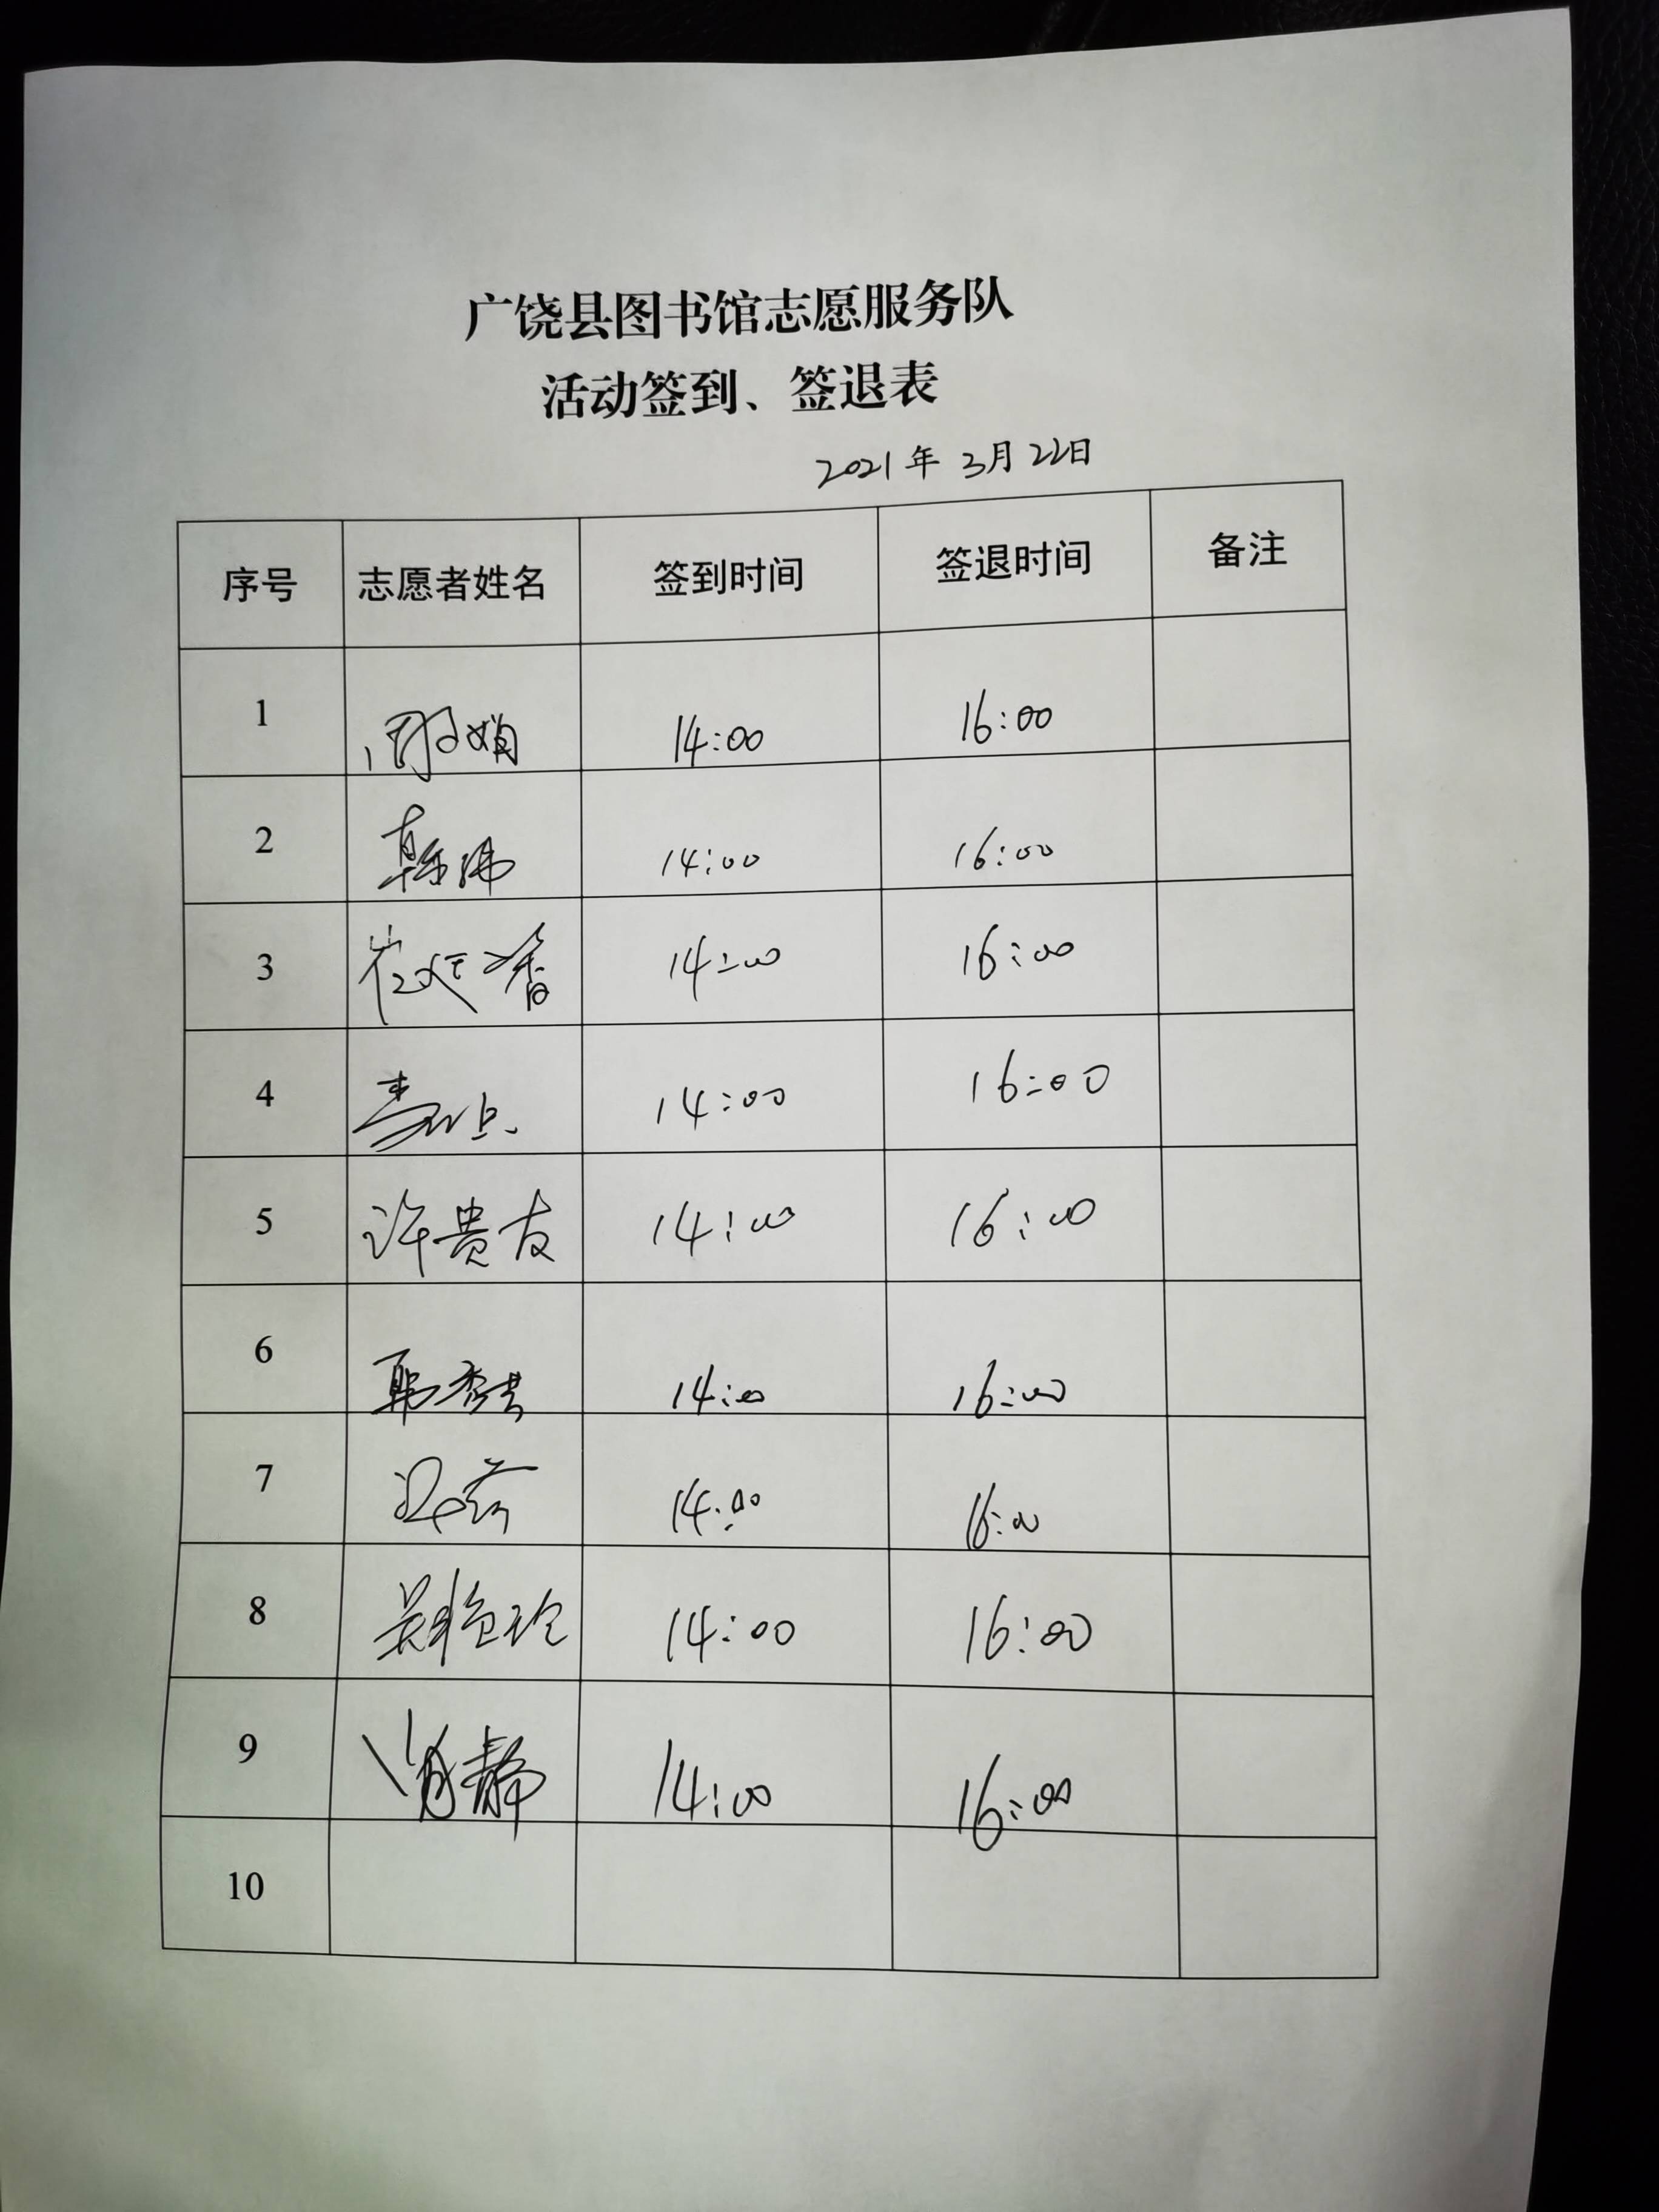 广饶县图书馆志愿服务队
活动签到、签退表
2021年 3月 22日
序号 志愿者姓名 签到时间 签退时间 备注
1 14:00 16:00
2 韩玮 14:00 16:00
3 崔延香 14:00 16:00
4 14:00 16:00
5 许贵友 14:00 16:00
6 14:00 16:00
7 14:00 16:00
8 14:00 16:00
9 肖静 14:00 16:00
10